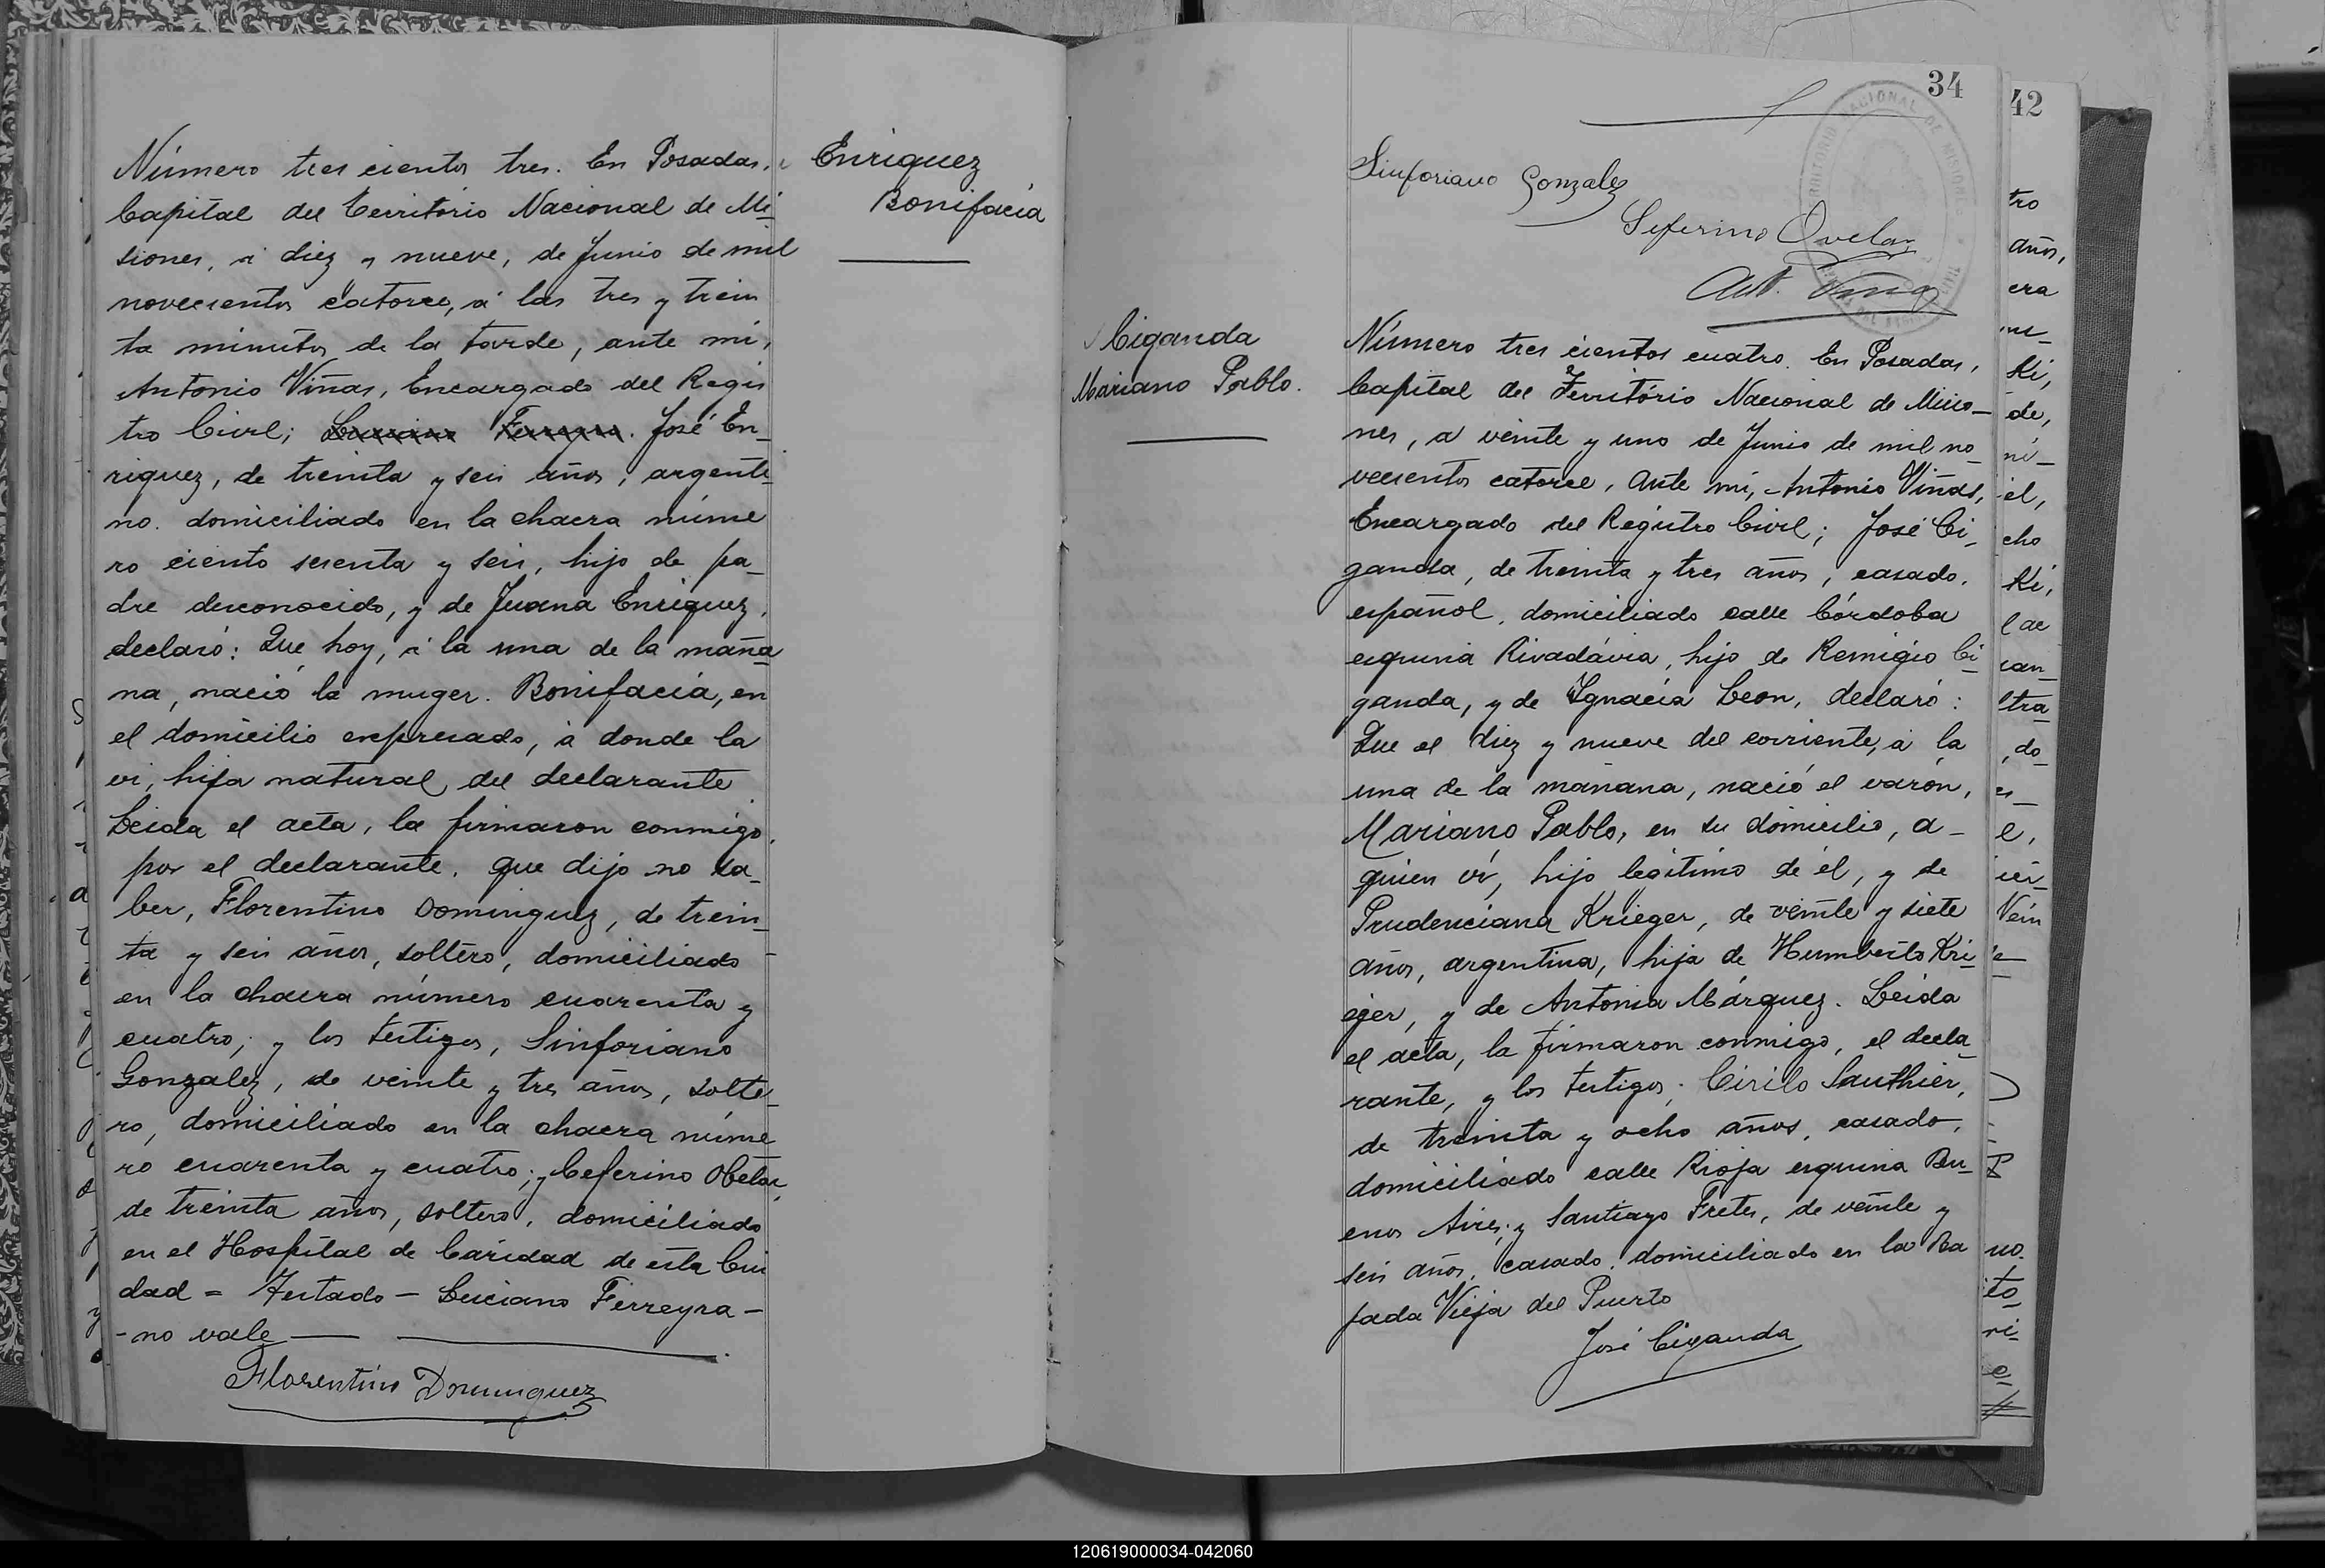 Número tres cientos tres. En Posadas,
Capital del Território Nacional de Mi-
siones, á diez y nueve, de Junio de mil
novecientos catorce, á las tres y trein
ta minutos de la tarde, ante mi,
Antonio Viñas, Encargado del Regis
tro Civil; Luciano Ferreyra. José En-
riquez, de treinta y seis años, argenti-
no. domiciliado en la chacra núme
ro ciento sesenta y seis, hijo de pa-
dre desconocido, y de Juana Enriquez,
declaró: Que hoy, á la una de la maña
na, nació la muger. Bonifacia, en
el domicilio expresado, á donde la
vi, hija natural, del declarante
Leida el acta, la firmaron conmigo,
por el declarante, que dijo no sa-
ber, Florentino Dominguez, de trein-
ta y seis años, soltero, domiciliado
en la chacra número cuarenta y
cuatro; y los testigos, Sinforiano
Gonzalez, de veinte y tres años, solte-
ro, domiciliado en la chacra núme
ro cuarenta y cuatro; y Ceferino Obelar,
de treinta años, soltero, domiciliado
en el Hospital de Caridad de esta Ciu
dad = Testado - Luciano Ferreyra -
- no vale
Florentino Dominguez
Enriquez
Bonifacia
34
Sinforiano Gonzalez
Seferino Ovelar
Ant. Viñas
Ciganda
Mariano Pablo.
Número tres cientos cuatro. En Posadas,
Capital del Território Nacional de Misio-
nes, a veinte y uno de Junio de mil no-
vecientos catorce, ante mi, Antonio Viñas,
Encargado del Registro Civil; José Ci-
ganda, de treinta y tres años, casado,
español, domiciliado calle Córdoba
esquina Rivadávia, hijo de Remigio Ci-
ganda, y de Ignacia Leon, declaró:
Que el diez y nueve del corriente, á la
una de la mañana, nació el varón,
Mariano Pablo, en su domicilio, a-
quien ví, hijo legítimo de él, y de
Prudenciana Krieger, de veinte y siete
años, argentina, hija de Humberto Kri-
eger, y de Antonia Márquez. Leida
el acta, la firmaron conmigo, el decla-
rante, y los testigos; Cirilo Sauthier,
de treinta y ocho años, casado,
domiciliado calle Rioja esquina Bu-
enos Aires; y Santiago Fretes, de veinte y
seis años, casado, domiciliado en la Ba
jada Vieja del Puerto
José Ciganda
42
tro
años,
era
Ki,
de,
ni-
el,
cho
Ki,
tra-
do-
Vein
120619000034-042060